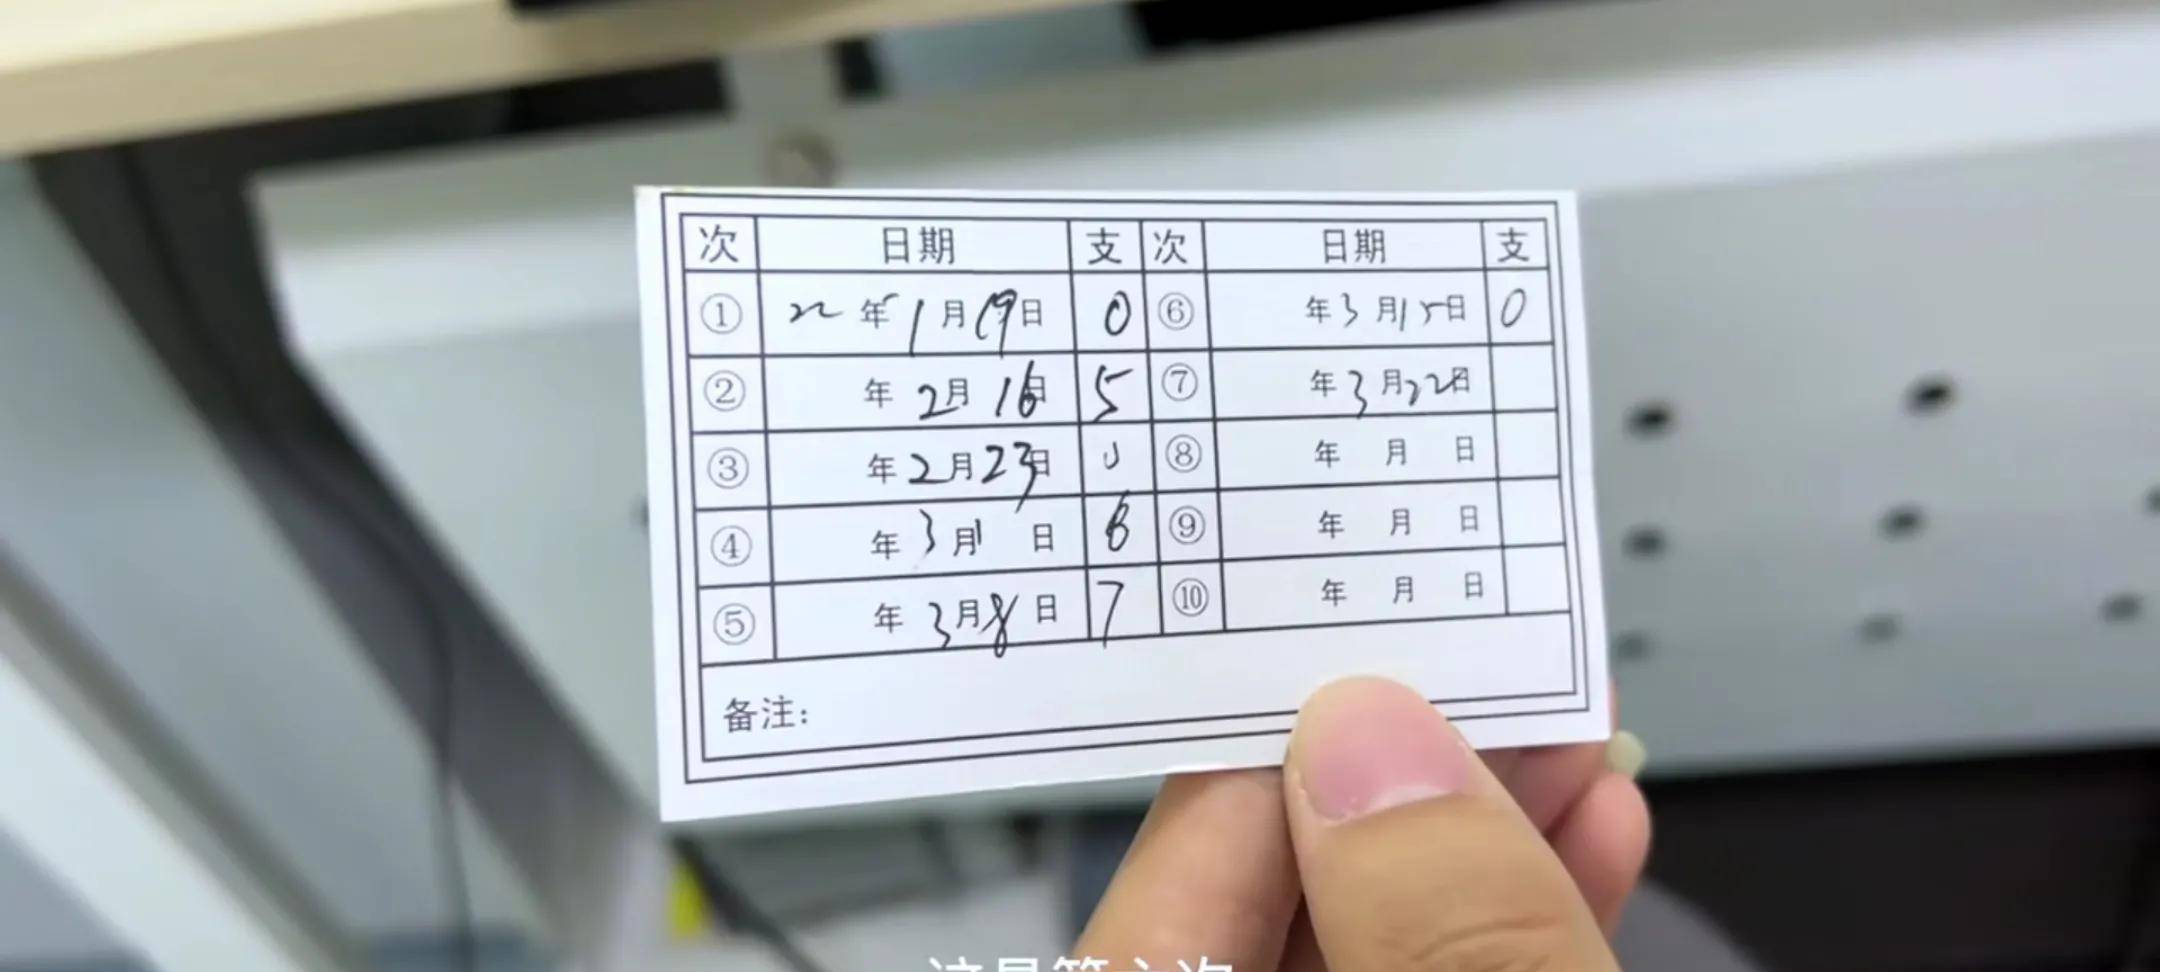 次 日期 支 次 日期 支
① 22年1月19日 0 ⑥ 年3月15日 0
② 年2月16日 5 ⑦ 年3月22日
③ 年2月23日 0 ⑧ 年 月 日
④ 年3月1日 6 ⑨ 年 月 日
⑤ 年3月8日 7 ⑩ 年 月 日
备注：
这是第六次